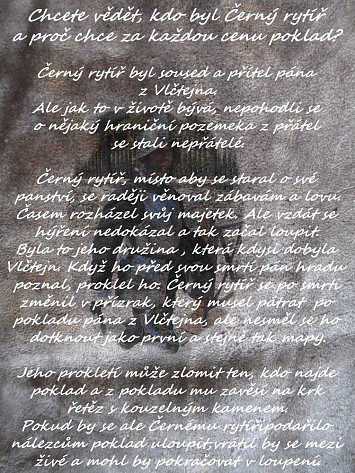 Chcete vědět, kdo byl Černý rytíř
a proč chce za každou cenu poklad?
Černý rytíř byl soused a přítel pána
z Vlčtejna.
Ale jak to v životě bývá, nepohodli se
o nějaký hraniční pozemeka z přátel
se stali nepřátelé.
Černý rytíř, místo aby se staral o své
panství, se raději věnoval zábavám a lovu.
Časem rozházel svůj majetek. Ale vzdát se
hýření nedokázal a tak začal loupit.
Byla to jeho družina , která kdysi dobyla
Vlčtejn. Když ho před svou smrtí pán hradu
poznal, proklel ho. Černý rytíř se po smrti
změnil v přízrak, který musel pátrat po
pokladu pána z Vlčtejna, ale nesměl se ho
dotknout jako první a stejně tak mapy.
Jeho prokletí může zlomit ten, kdo najde
poklad a z pokladu mu zavěsí na krk
řetěz s kouzelným kamenem.
Pokud by se ale Černému rytířipodařilo
nálezcům poklad uloupit,vrátil by se mezi
živé a mohl by pokračovat v loupení.